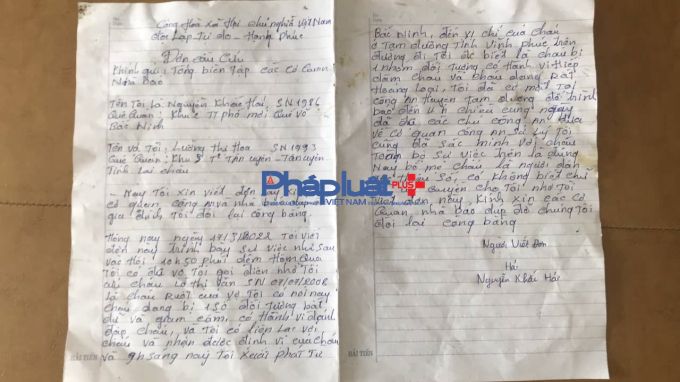 Cộng Hòa Xã Hội chủ nghĩa Việt Nam
độc Lập Tự do - Hạnh Phúc
Đơn cầu cứu
Kính gửi: Tổng biên tập các Cơ Quan
Nhà báo
Tên Tôi là Nguyễn Khắc Hải, SN 1986
Quê Quán: Khu TT phố mới Quế Võ
Bắc Ninh
Tên vợ Tôi, Lường thị Hoa SN 1993
Quê Quán: Khu 5 TT Tân uyên - Tân uyên
Tỉnh Lai châu
- Nay Tôi xin viết đơn này
cơ quan, công an và nhà báo
gia đình Tôi đòi lại công bằng
Hôm nay ngày 17/3/2022 Tôi viết
đơn này trình bày sự việc như sau
vào Hồi 10h50 phút đêm Hôm Qua
Tôi có chị vợ Tôi gọi điện nhờ Tôi
cứu cháu Lò thị Vân SN 07/07/2008
là cháu Ruột của vợ Tôi có nói nay
cháu đang bị 1 số đối Tượng bắt
dữ và giam cầm, có Hành vi đánh
đập cháu, và Tôi có liên Lạc với
cháu và nhận được định vị của cháu
và 9h sáng nay Tôi xuất phát Từ
HẢI TIẾN
Bắc Ninh, đến vị chỉ của cháu
ở Tam dương Tỉnh Vĩnh phúc trên
đường đi Tôi được biết là cháu bị
1 nhóm đối Tượng có Hành vi Hiếp
dâm cháu và cháu đang Rất
Hoảng loạn, Tôi đã có mặt Tại
công an Huyện Tam dương để trình
báo đến chiều cùng ngày
đã được các chú công an đưa
về cơ quan công an sử lý Tôi
cũng đã sác minh với cháu
Toàn bộ sự việc hiện là đúng
Nay bố mẹ cháu là người dân
Thiểu số, có không biết chữ
quyền cho Tôi nhờ Tôi
viết đơn này, kính xin các cơ
Quan, nhà báo dúp đỡ chúng Tôi
đòi lại công bằng
Người viết đơn
Hải
Nguyễn Khắc Hải
HẢI TIẾN
Phápluật PLUS+
VIỆT NAM